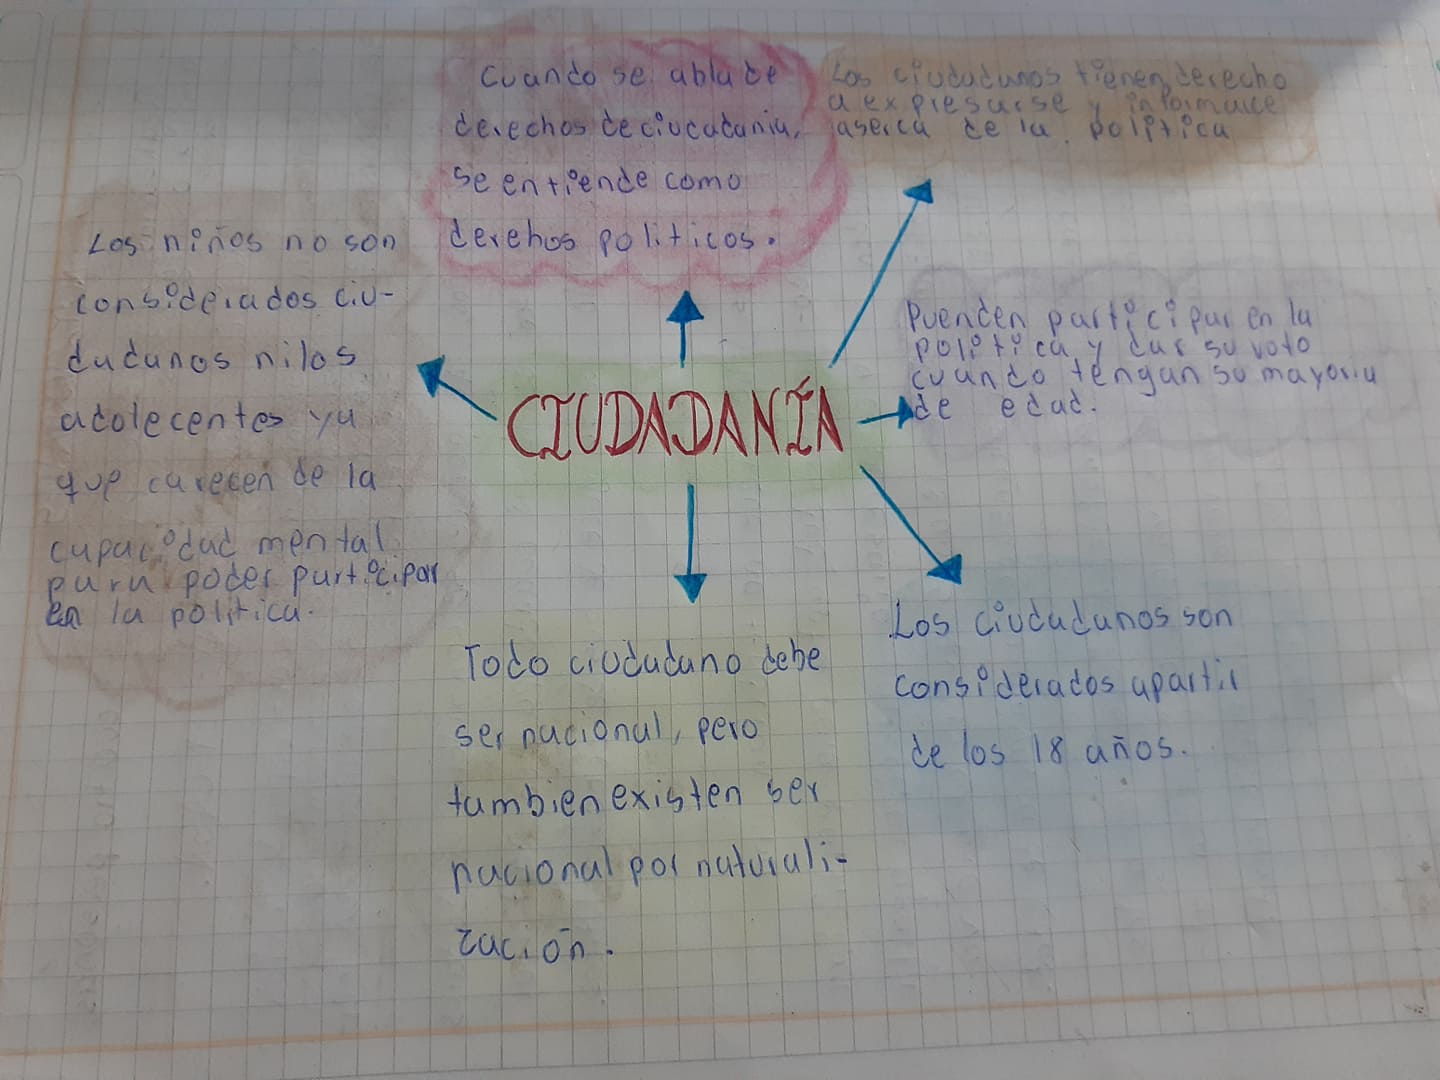 Cuando se abla de
derechos de ciudadania,
se entiende como
derehos politicos.
Los ciudadanos tienen derecho
a expresarse y informarce
aserca de la politica
Los niños no son
considerados ciu-
dadanos ni los
adolecentes ya
que carecen de la
capacidad mental
para poder participar
en la politica.
CIUDADANÍA
Puenden participar en la
politica y dar su voto
cuando tengan su mayoria
de edad.
Todo ciudadano debe
ser nacional, pero
tambien existen ser
nacional por naturali-
zación.
Los ciudadanos son
considerados apartir
de los 18 años.